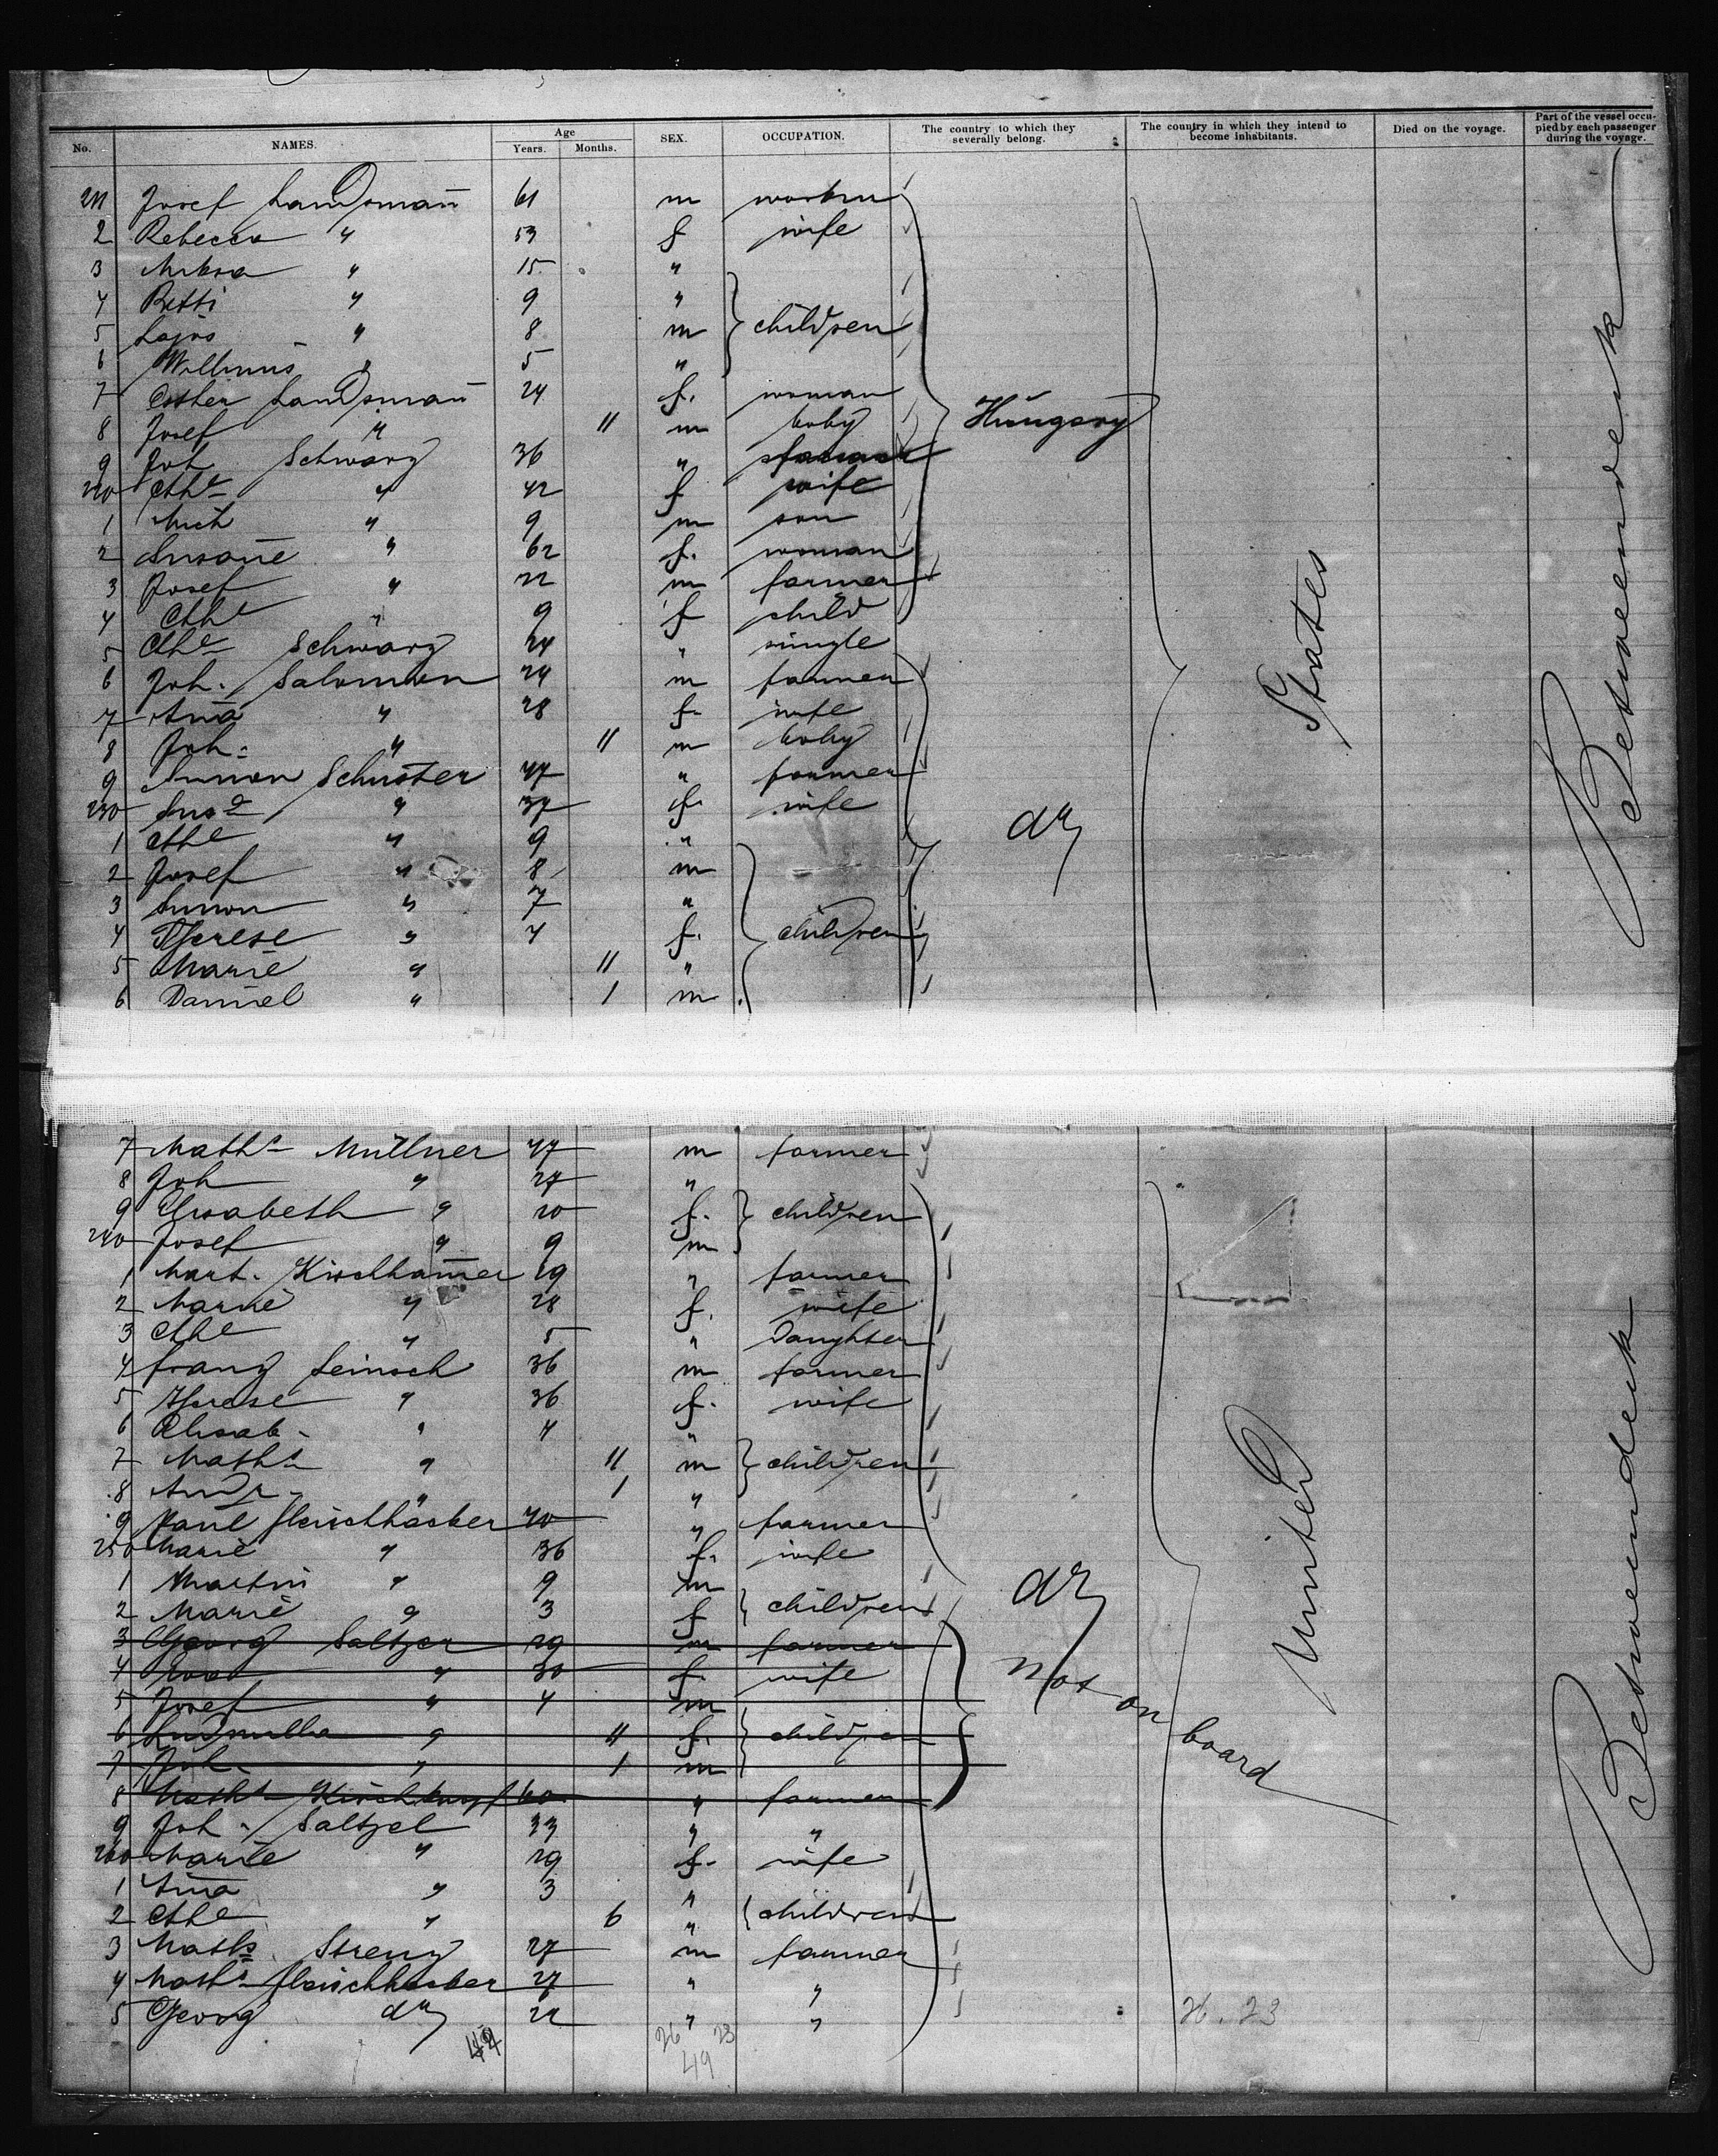 No. NAMES. Age Years. Months. SEX. OCCUPATION. The country to which they severally belong. The country in which they intend to become inhabitants. Died on the voyage. Part of the vessel occupied by each passenger during the voyage.
211 Josef Landsmañ 61 m
2 Rebecca " 53 f wife
3 " 15 "
4 Betti " 9 "
5 Lajos " 8 m children
6 " 5 "
7 Esther Landsmañ 24 f. woman
8 Josef " 11 m baby Hungary
9 Joh Schwarz 36 "
220 Cthe " 42 f wife
1 Mich " 9 m son
2 Susañe " 62 f. woman
3 Josef " 22 m farmer
4 Cthe " 9 f child
5 Cthe Schwarz 24 " single
6 Joh. Salomon 24 m farmer
7 Aña " 28 f. wife
8 Joh. " 11 m baby
9 Simon Schuster 47 " farmer
230 Susa " 37 f. wife do
1 Cthe " 9 "
2 Josef " 8 m
3 Simon " 7 "
4 Therese " 4 f. children
5 Marie " 11 "
6 Daniel " 1 m
States
Betweendeck
7 Maths Müllner 47 m farmer
8 Joh " 27 "
9 Elisabeth " 20 f. children
240 Josef " 9 m
1 Mart. Kirchhamer 29 " farmer
2 Marie " 28 f. wife
3 Cthe " 5 " Daughter
4 Franz Leinsch 36 m farmer
5 Therese " 36 f. wife
6 Elisab. " 4 "
7 Maths " 11 m children
8 Andr. " 1 "
9 Paul Fleischhacker 40 " farmer
250 Marie " 36 f. wife
1 Martin " 9 m do
2 Marie " 3 f children
3 Georg Saltzer 29 m farmer
4 Rosa " 30 f. wife not on board
5 Josef " 4 m
6 Ludmilla " 11 f. children
7 Joh. " 1 m
8 Maths 60 " farmer
9 Joh. Saltzel 33 " "
260 Marie " 29 f. wife
1 Aña " 3 "
2 Cthe " 6 " children
3 Maths Streng 27 m farmer
4 Maths Fleischhacker 27 " "
5 Georg do 22 " "
United
Betweendeck
26 23
49
26. 23